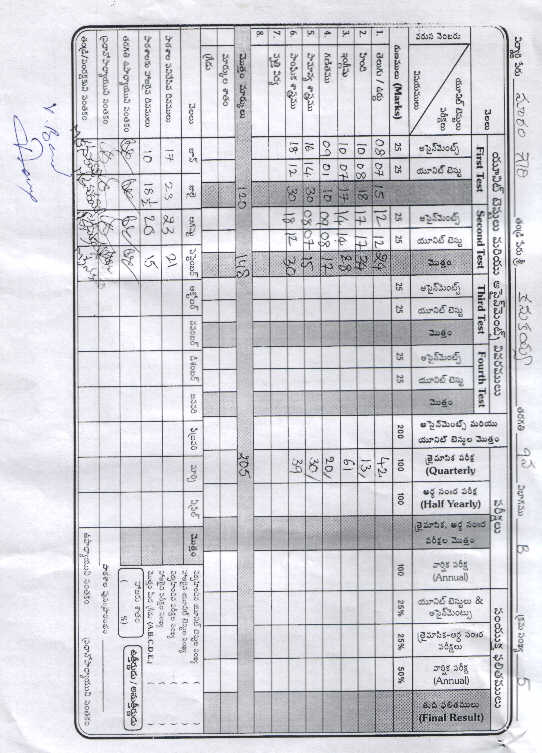 విద్యార్థి పేరు
తండ్రి పేరు శ్రీ
తరగతి 9వ విభాగము B క్రమ సంఖ్య 5
నెలలు యూనిట్ టెస్టులు మరియు అసైన్‌మెంట్స్ వివరములు పరీక్షలు సంయుక్త ఫలితములు
యూనిట్ టెస్టులు పరీక్షలు
First Test Second Test Third Test Fourth Test
అసైన్‌మెంట్స్ యూనిట్ టెస్టు అసైన్‌మెంట్స్ యూనిట్ టెస్టు మొత్తం అసైన్‌మెంట్స్ యూనిట్ టెస్టు మొత్తం అసైన్‌మెంట్స్ యూనిట్ టెస్టు మొత్తం
అసైన్‌మెంట్స్ మరియు యూనిట్ టెస్టుల మొత్తం
త్రైమాసిక పరీక్ష (Quarterly
అర్ధ సంవ పరీక్ష (Half Yearly)
త్రైమాసిక, అర్ధ సంవ పరీక్షల మొత్తం
వార్షిక పరీక్ష (Annual)
యూనిట్ టెస్టులు & అసైన్‌మెంట్సు
త్రైమాసిక-అర్ధ సంవ పరీక్షలు
వార్షిక పరీక్ష (Annual)
తుది ఫలితములు (Final Result)
వరుస నెంబరు విషయములు
గుణములు (Marks) 25 25 25 25 25 25 25 25 200 100 100 100 25% 25% 50%
1. తెలుగు / ఉర్దు 08 07 15 12 12 24 42
2. హిందీ 10 08 18 17 17 34 13
3. ఇంగ్లీషు 10 07 17 14 14 28 61
4. గణితము 09 01 10 09 08 17 20
5. సామాన్య శాస్త్రము 16 14 30 08 07 15 30
6. సాంఘిక శాస్త్రము 18 12 30 18 12 30 39
7. వృత్తి విద్య
8.
మొత్తం మార్కులు 120 148 205
మార్కుల శాతం
గ్రేడు
నెలలు జూన్ జూలై ఆగష్టు సెప్టెంబర్ అక్టోబర్ నవంబర్ డిశంబర్ జనవరి ఫిబ్రవరి మార్చి ఏప్రిల్ మొత్తం
పాఠశాల పనిచేసిన దినములు 17 23 23 21
పాఠశాలకు హాజరైన దినములు 10 18½ 20 15
తరగతి ఉపాధ్యాయుని సంతకం
ప్రధానోపాధ్యాయుని సంతకం
తండ్రి/సంరక్షకుని సంతకం
(A.B.C.D.E.)
హాజరు శాతం ( %)
ఉత్తీర్ణుడు / అనుత్తీర్ణుడు
పాఠశాల పున:ప్రారంభం
ఉపాధ్యాయుని సంతకం ప్రధానోపాధ్యాయుని సంతకం